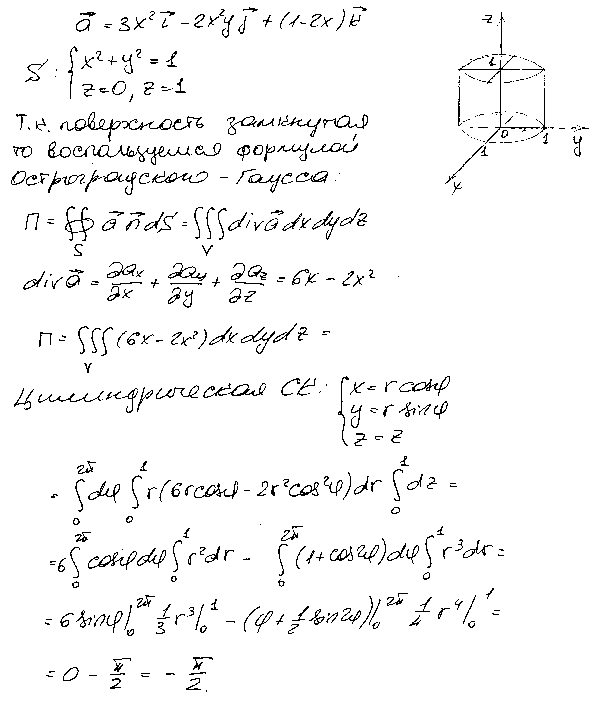 a⃗ = 3x² i⃗ − 2x²y j⃗ + (1−2x) k⃗
S: { x² + y² = 1
z=0, z=1
Т.к. поверхность замкнутая
то воспользуемся формулой
Остроградского – Гаусса:
П = ∯_S a⃗ n⃗ dS = ∭_V div a⃗ dx dy dz
div a⃗ = ∂ax/∂x + ∂ay/∂y + ∂az/∂z = 6x − 2x²
П = ∭_V (6x − 2x²) dx dy dz =
Цилиндрическая СК: { x = r cosφ
y = r sinφ
z = z
= ∫₀^2π dφ ∫₀^1 r(6r cosφ − 2r² cos²φ) dr ∫₀^1 dz =
= 6 ∫₀^2π cosφ dφ ∫₀^1 r² dr − ∫₀^2π (1 + cos2φ) dφ ∫₀^1 r³ dr =
= 6 sinφ |₀^2π 1/3 r³ |₀^1 − (φ + 1/2 sin2φ) |₀^2π 1/4 r⁴ |₀^1 =
= 0 − π/2 = − π/2.
z
1
0
1
1
y
x